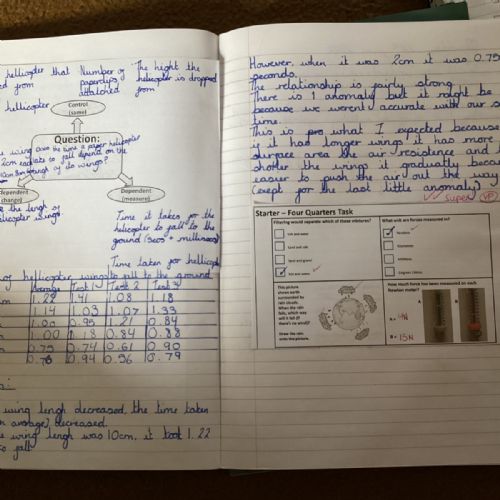 helicopter that Number of The height the
ed from paperclips helicopter is dropped
attatched from
helicopter
Control
(same)
Question:
wing does the time a paper helicopter
to fall depend on the
of its wings?
dependent
(change)
Dependent
(measure)
the lengh of
helicopter wings
Time it takes for the
helicopter to fall to the
ground (secs + milliseconds)
Time taken for helicopter
of helicopter wings to fall to the ground
average Test 1 Test 2 Test 3
1.22 1.41 1.08 1.18
1.14 1.03 1.07 1.33
1.00 0.95 1.21 0.84
1.00 0.84 0.88
0.75 0.74 0.61 0.90
0.94 0.56 0.79
wing lengh decreased, the time taken
average) decreased.
wing lengh was 10cm, it took 1.22
to fall
However, when it was 2cm it was 0.75
seconds.
The relationship is fairly strong
There is 1 anomaly but it might be
because we werent accurate with our
time.
This is what I expected because
if it had longer wings it has more
surface area the air resistence and
shorter the wings it gradually because
easier to push the air out the way
(exept for the last little anomaly)
Super VP
Starter – Four Quarters Task
Filtering would separate which of these mixtures?
Salt and water
Sand and salt
Sand and gravel
Salt and water
What unit are forces measured in?
Newtons
Kilometres
Millilitres
Degrees Celsius
This picture
shows earth
surrounded by
rain clouds.
When the rain
falls, which way
will it fall (if
there's no wind)?
Draw the rain
onto the picture.
How much force has been measured on each
Newton meter?
A = 4N
B = 15N